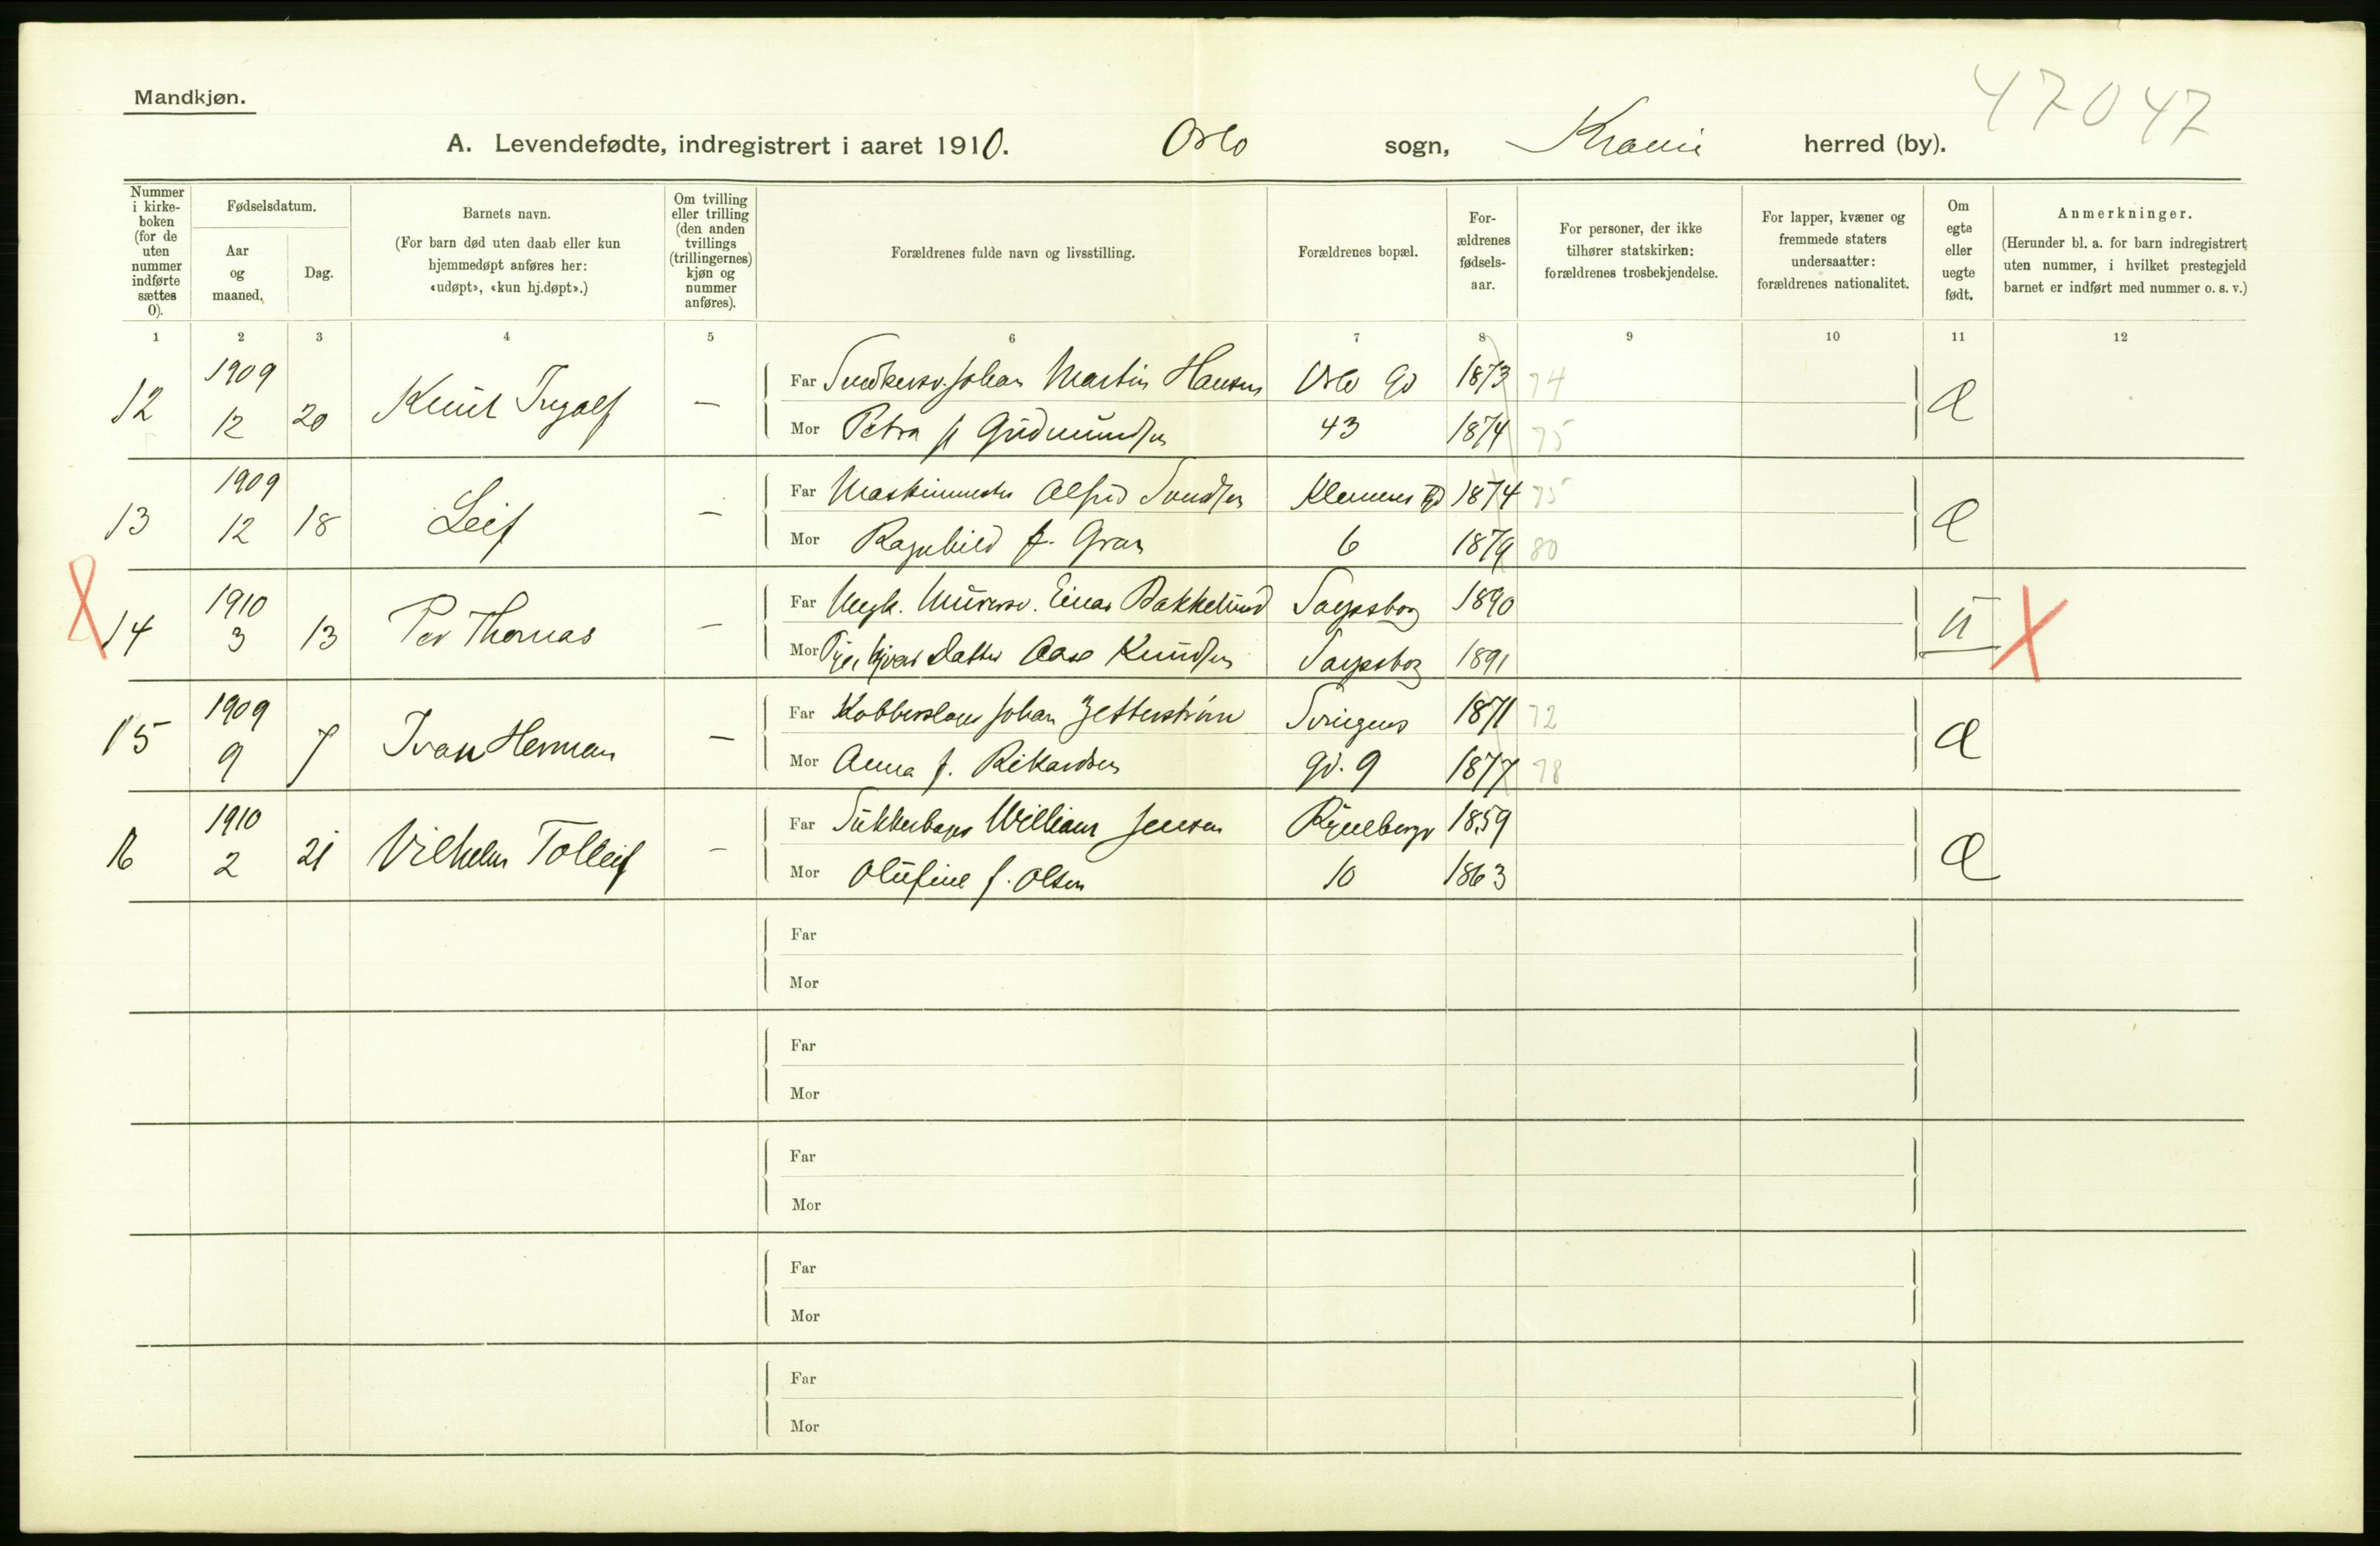 47042
Mandkjøn.
A. Levendefødte, indregistrert i aaret 1910. Oslo sogn, Krania herred (by).
Nummer i kirke-boken (for de uten nummer indførte sættes 0).
Fødselsdatum.
Aar og maaned.
Dag.
Barnets navn.
(For barn død uten daab eller kun hjemmedøpt anføres her: «udøpt», «kun hj.døpt».)
Om tvilling eller trilling (den anden tvillings (trillingernes) kjøn og nummer anføres).
Forældrenes fulde navn og livsstilling.
Forældrenes bopæl.
For-ældrenes fødsels-aar.
For personer, der ikke tilhører statskirken: forældrenes trosbekjendelse.
For lapper, kvæner og fremmede staters undersaatter: forældrenes nationalitet.
Om egte eller uegte født.
Anmerkninger.
(Herunder bl. a. for barn indregistrert uten nummer, i hvilket prestegjeld barnet er indført med nummer o. s. v.)
1 2 3 4 5 6 7 8 9 10 11 12
12 1909 12 20 Knut Ingolf — Far Johan Martin Hansen Oslo Gd 1873 74 Æ
Mor Petra f Gudmundsen 43 1874 75
13 1909 12 18 Leif — Far Maskinmester Alfred Svendsen Klemens Gd 1874 75 Æ
Mor Ragnhild f. Gran 6 1879 80
14 1910 3 13 Per Thomas — Far Ungk. Murersv. Einar Bakkelund Sarpsborg 1890 U
Mor Pige Datter Aase Knudsen Sarpsborg 1891
15 1909 9 7 Ivan Herman — Far Kobberslager Johan Zetterström Sveigens 1871 72 Æ
Mor Anna f. Rikardsen gd. 9 1877 78
16 1910 2 21 Vilhelm Tolleif — Far Sukkerbager William Jensen Ryenbergv 1859 Æ
Mor Olufine f. Olsen 10 1863
Far
Mor
Far
Mor
Far
Mor
Far
Mor
Far
Mor